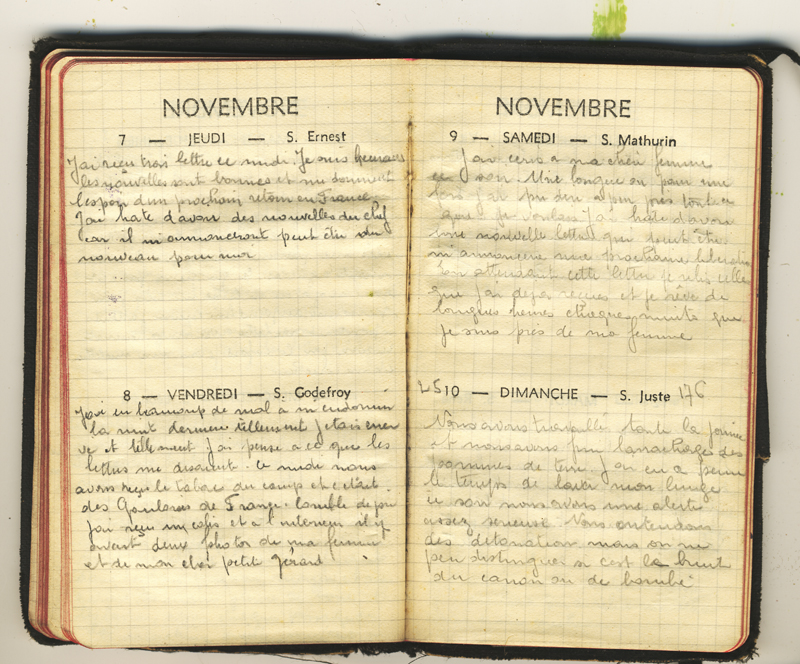 NOVEMBRE
7 — JEUDI — S. Ernest
J'ai reçu trois lettre ce midi. Je suis heureux
les nouvelles sont bonnes et me donnent
l'espoir d'un prochain retour en France
J'ai hate d'avoir des nouvelles du chef
car il m'annonceront peut être du
nouveau pour moi
8 — VENDREDI — S. Godefroy
J'ai eu beaucoup de mal a m'endormir
la nuit derniere tellement j'etais ener
vé et tellement j'ai pensé a ce que les
lettres me disaient. Ce midi nous
avons reçu le tabac du camp et c'etait
des Gauloises de France. Comble de joie
j'ai reçu un colis et a l'interieur il y
avait deux photos de ma femme
et de mon cher petit Gérard
NOVEMBRE
9 — SAMEDI — S. Mathurin
J'ai ecris a ma chère femme
ce soir. Une longue ou pour une
fois j'ai pu dire a peu près tout ce
que je voulais j'ai hate d'avoir
une nouvelle lettre qui peut être
m'annoncera une prochaine liberation
En attendant cette lettre je relis celle
que j'ai deja reçues et je rêve de
longues heures chaque nuits que
je suis près de ma femme
25 10 — DIMANCHE — S. Juste 176
Nous avons travaillés toute la journée
et nous avons fini l'arrachage des
pommes de terre. J'ai eu a peine
le temps de laver mon linge
ce soir nous avons une alerte
assez serieuse. Nous entendons
des détonation mais on ne
peu distinguer si c'est le bruit
du canon ou de bombe